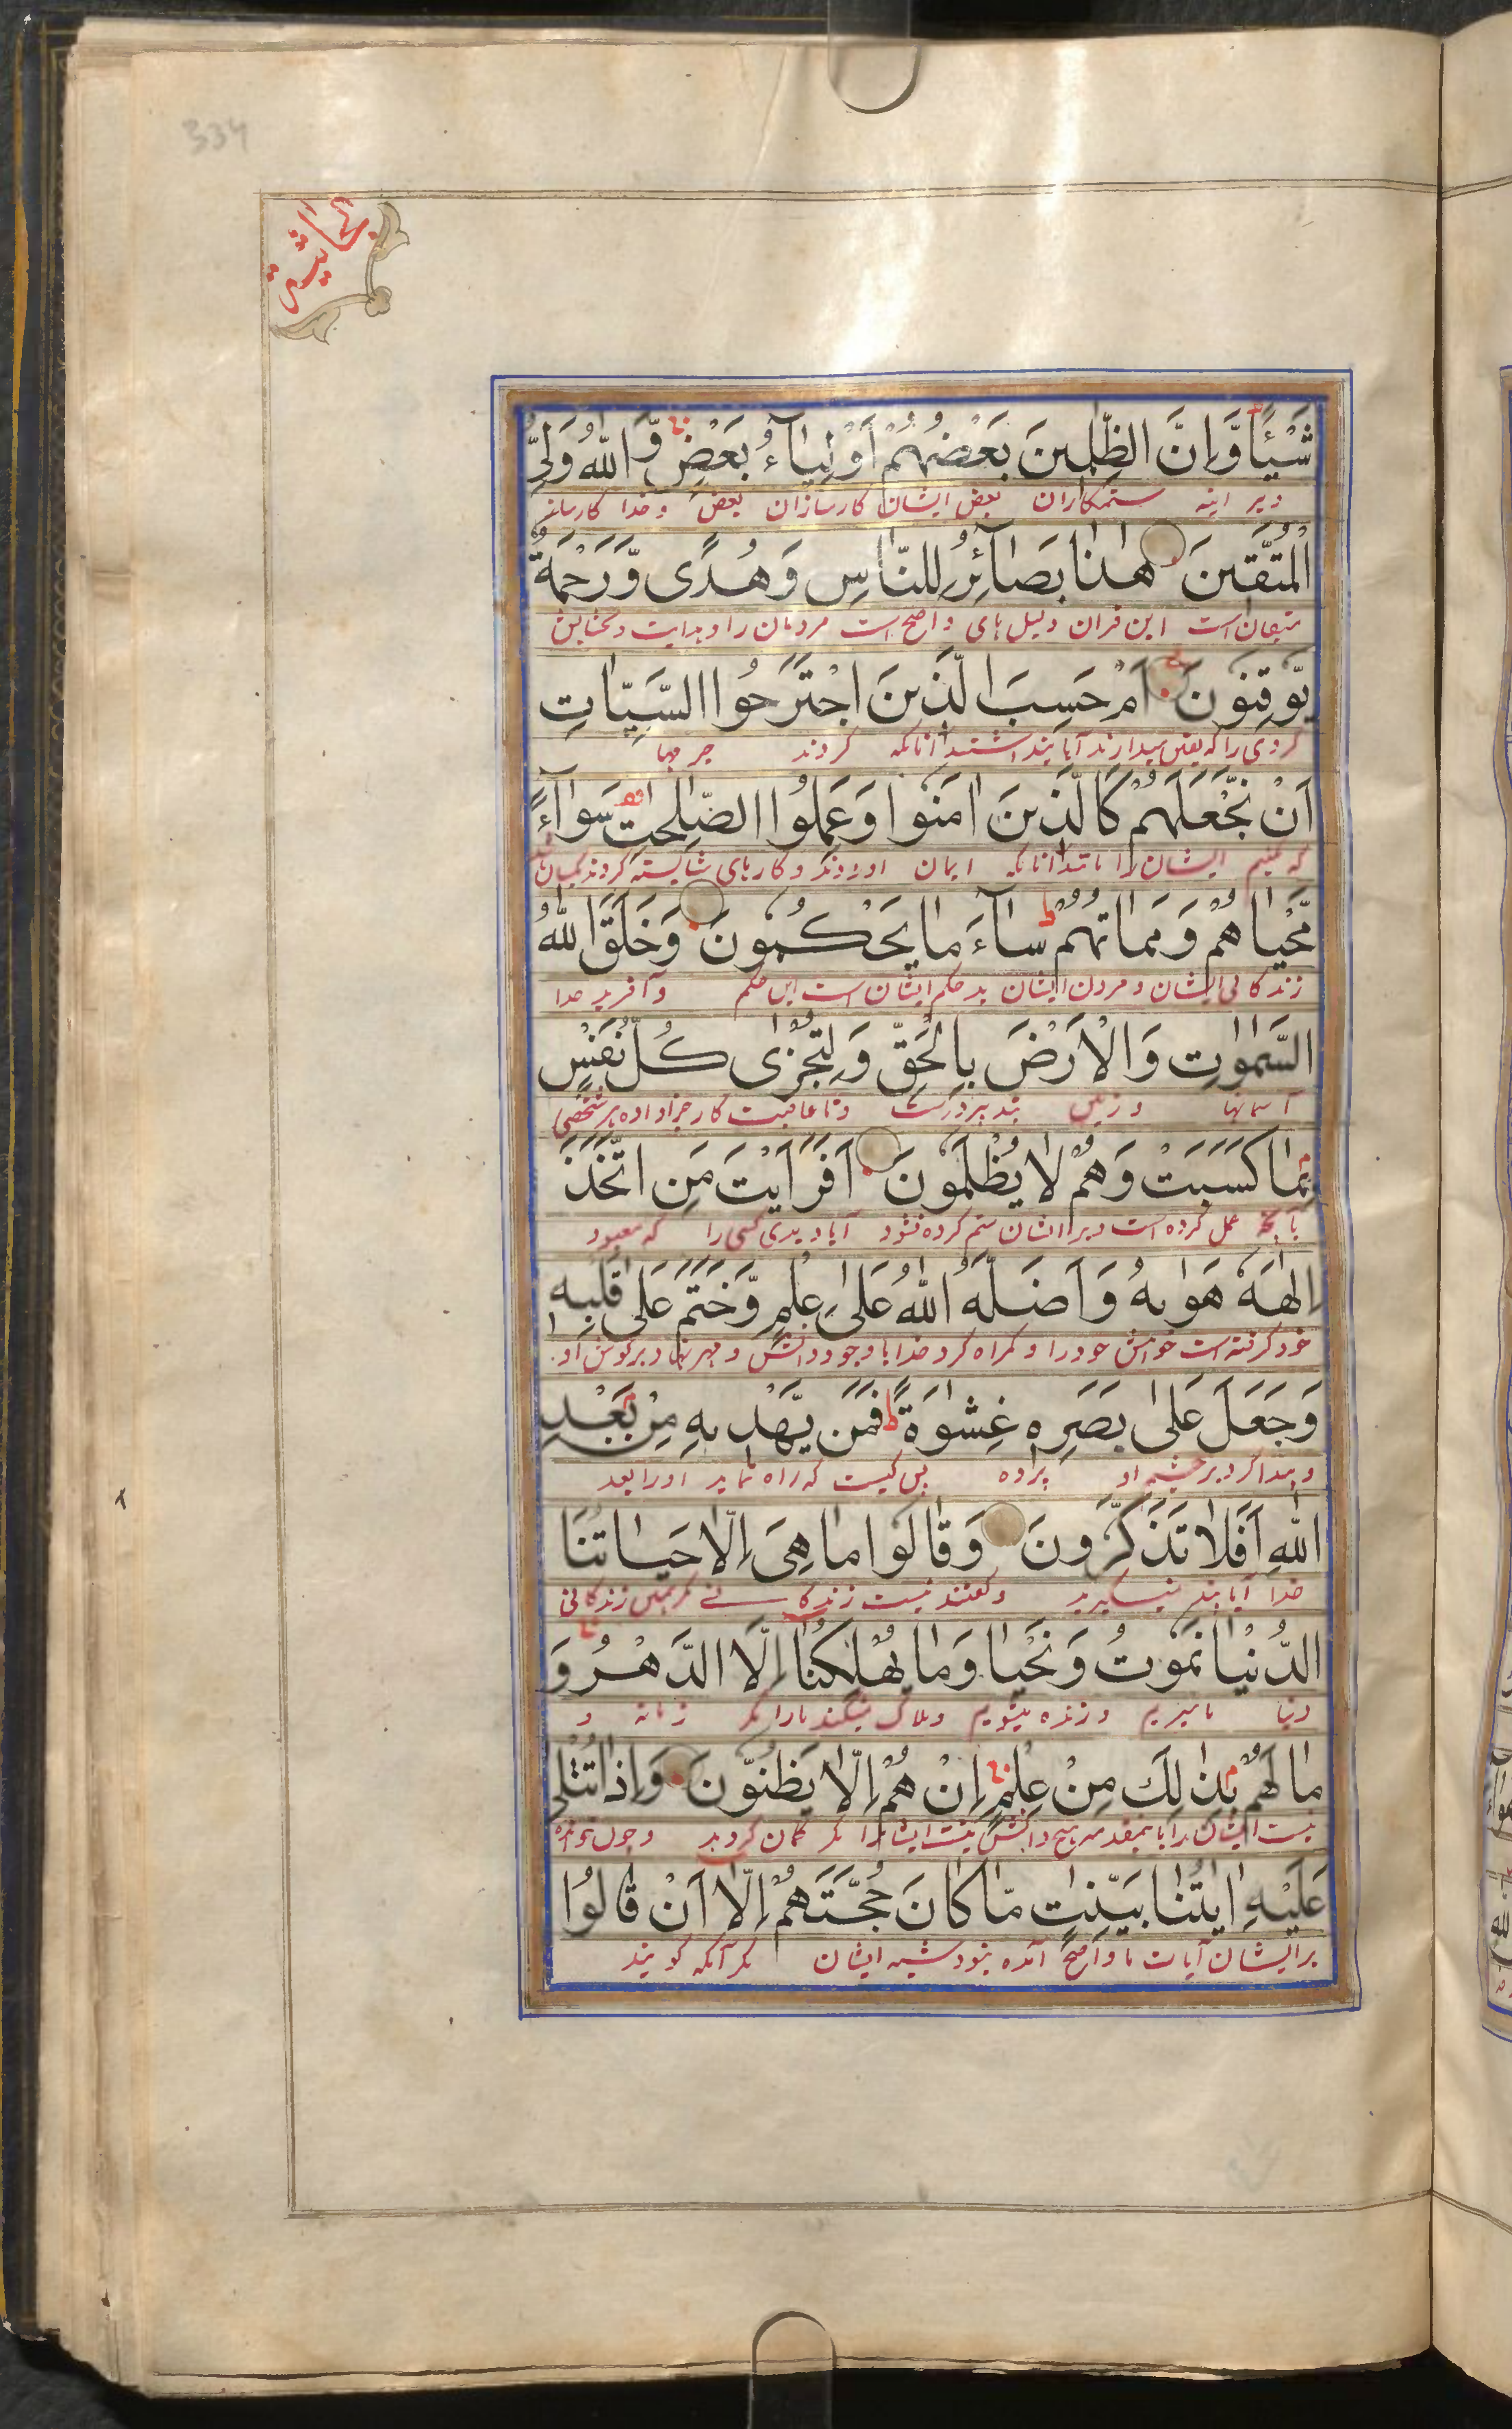 334
الجاثية
شَيْـًٔا وَّاِنَّ الظّٰلِمِيْنَ بَعْضُهُمْ اَوْلِيَآءُ بَعْضٍ وَّاللّٰهُ وَلِيُّ
ستمکاران بعض ایشان کارسازان بعض و خدا کارساز
الْمُتَّقِيْنَ هٰذَا بَصَآئِرُ لِلنَّاسِ وَهُدًى وَّرَحْمَةٌ
متقیان است این قران دلیل های واضح است مردمان را و هدایت و بخشایش
يُّوْقِنُوْنَ اَمْ حَسِبَ الَّذِيْنَ اجْتَرَحُوا السَّيِّاٰتِ
را که یقین میدارند آیا پنداشتند آنانکه کردند جرمها
اَنْ نَّجْعَلَهُمْ كَالَّذِيْنَ اٰمَنُوْا وَعَمِلُوا الصّٰلِحٰتِ سَوَآءً
که کنیم ایشان را مانند آنانکه ایمان اوردند و کارهای شایسته کردند یکسان
مَّحْيَاهُمْ وَمَمَاتُهُمْ سَآءَ مَا يَحْكُمُوْنَ وَخَلَقَ اللّٰهُ
زندگانی ایشان و مردن ایشان بد حکم ایشان است این حکم و آفرید خدا
السَّمٰوٰتِ وَالْاَرْضَ بِالْحَقِّ وَلِتُجْزٰى كُلُّ نَفْسٍ
آسمانها و زمین بتدبیر درست و تا عاقبت کار جزا داده هر شخصی
بِمَا كَسَبَتْ وَهُمْ لَا يُظْلَمُوْنَ اَفَرَاَيْتَ مَنِ اتَّخَذَ
بآنچه عمل کرده است و بر ایشان ستم کرده نشود آیا دیدی کسی را که معبود
اِلٰهَهٗ هَوٰىهُ وَاَضَلَّهُ اللّٰهُ عَلٰى عِلْمٍ وَّخَتَمَ عَلٰى قَلْبِهٖ
خود گرفته است خواهش خود را و گمراه کرد خدا با وجود دانش و مهر نهاد بر گوش او
وَجَعَلَ عَلٰى بَصَرِهٖ غِشٰوَةً فَمَنْ يَّهْدِيْهِ مِنْ بَعْدِ
و پیدا کرد بر چشم او پرده پس کیست که راه نماید او را بعد
اللّٰهِ اَفَلَا تَذَكَّرُوْنَ وَقَالُوْا مَا هِيَ اِلَّا حَيَاتُنَا
خدا آیا پند نمیگیرید و گفتند نیست زندگانی مگر همین زندگانی
الدُّنْيَا نَمُوْتُ وَنَحْيَا وَمَا يُهْلِكُنَا اِلَّا الدَّهْرُ وَ
دنیا میمیریم و زنده میشویم و هلاک نمیکند ما را مگر زمانه و
مَا لَهُمْ بِذٰلِكَ مِنْ عِلْمٍ اِنْ هُمْ اِلَّا يَظُنُّوْنَ وَاِذَا تُتْلٰى
نیست ایشان را باین مقدمه هیچ دانش نیستند ایشان مگر گمان کردند و چون خوانده
عَلَيْهِمْ اٰيٰتُنَا بَيِّنٰتٍ مَّا كَانَ حُجَّتَهُمْ اِلَّا اَنْ قَالُوا
بر ایشان آیات ما واضح آمده نبود شبه ایشان مگر آنکه گویند